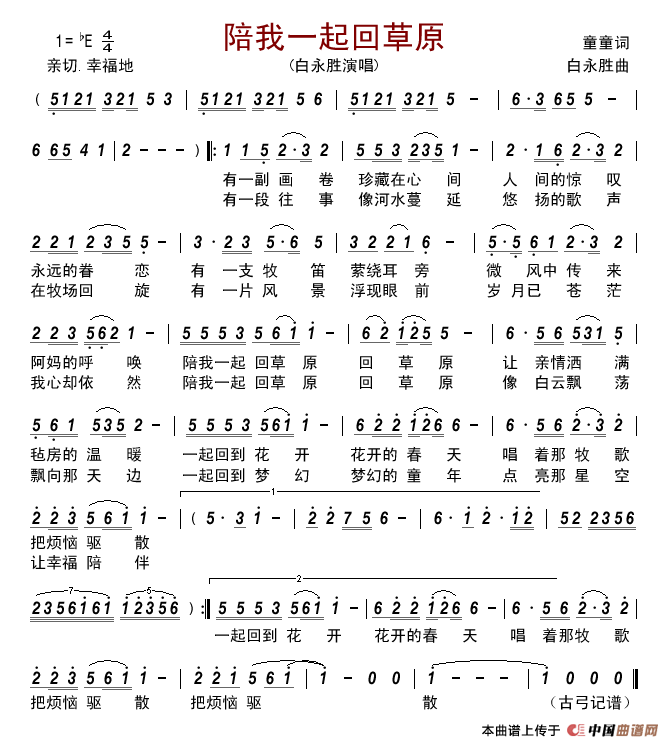 陪我一起回草原
1= ♭E 4/4
童童词
亲切.幸福地
(白永胜演唱)
白永胜曲
( 5121 321 5 3 | 5121 321 5 6 | 5121 321 5 - | 6·3 65 5 - |
6 65 4 1 | 2 - - - ) ‖: 1 1 5 2·3 2 | 5 5 5 3 235 1 - | 2·1 6 2·3 2 |
有一副 画 卷 珍藏在心 间 人 间的惊 叹
有一段 往 事 像河水蔓 延 悠 扬的歌 声
2 2 1 2 3 5 5 - | 3·2 3 5·6 5 | 3 2 2 2 1 6 - | 5·5 6 1 2·3 2 |
永远的眷 恋 有 一支牧 笛 萦绕耳 旁 微 风中 传 来
在牧场回 旋 有 一片风 景 浮现眼 前 岁 月已 苍 茫
2 2 3 5 6 2 1 - | 5 5 5 3 5 6 1 1 - | 6 2 1 2 5 5 - | 6·5 6 5 5 3 1 5 |
阿妈的呼 唤 陪我一起 回草 原 回 草 原 让 亲情洒 满
我心却依 然 陪我一起 回草 原 回 草 原 像 白云飘 荡
5 6 1 5 3 5 2 - | 5 5 5 3 5 6 1 1 - | 6 2 2 2 1 2 6 6 - | 6·5 5 6 2·3 2 |
毡房的 温 暖 一起回到 花 开 花开的 春 天 唱 着那 牧 歌
飘向那 天 边 一起回到 梦 幻 梦幻的 童 年 点 亮那 星 空
1
2 2 3 5 6 1 1 - | ( 5·3 1 - | 2 2 7 5 6 - | 6·1 2·12 | 52 2356
把烦恼 驱 散
让幸福 陪 伴
7 5 2
2356161 12356 ) :‖ 5 5 5 3 5 6 1 1 - | 6 2 2 1 2 6 6 - | 6·5 5 6 2·3 2 |
一起回到 花 开 花开的春 天 唱 着那牧 歌
2 2 3 5 6 1 1 - | 2 2 3 5 6 1 1 - | 1 - - - | 1 - 0 0 | 1 0 0 0 ‖
把烦恼 驱 散 把烦恼 驱 散 (古弓记谱)
本曲谱上传于 中国曲谱网